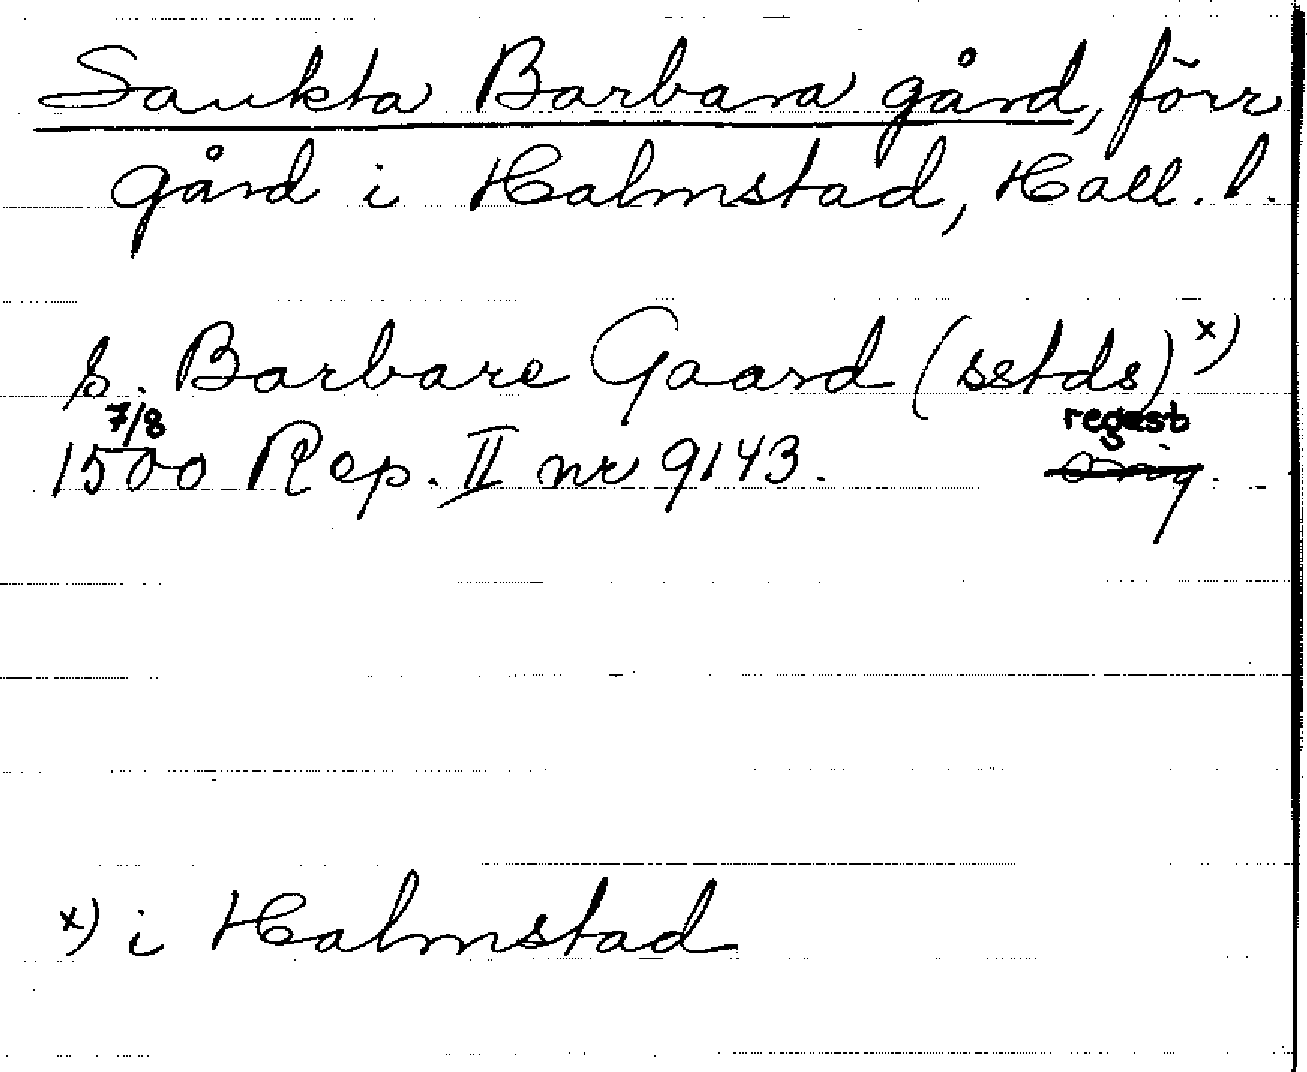 Sankta Barbara gård, förr
gård i Halmstad, Hall. l.
s. Barbare Gaard (setds) x)
7/8 regest
1500 Rep. II nr 9143. orig.
x) i Halmstad